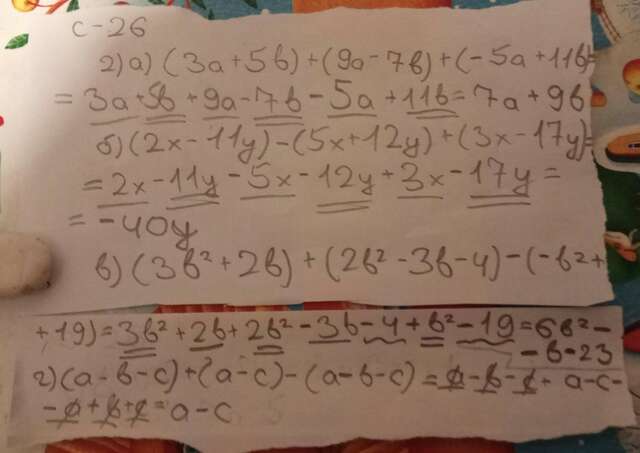 С-26
2)а) (3a+5b)+(9a-7b)+(-5a+11b)=
= 3a+5b+9a-7b-5a+11b=7a+9b
б)(2x-11y)-(5x+12y)+(3x-17y)=
=2x-11y-5x-12y+3x-17y=
=-40y
в)(3b²+2b)+(2b²-3b-4)-(-b²+
+19)=3b²+2b+2b²-3b-4+b²-19=6b²-
-b-23
г)(a-b-c)+(a-c)-(a-b-c)=a-b-c+a-c-
-a+b+c=a-c